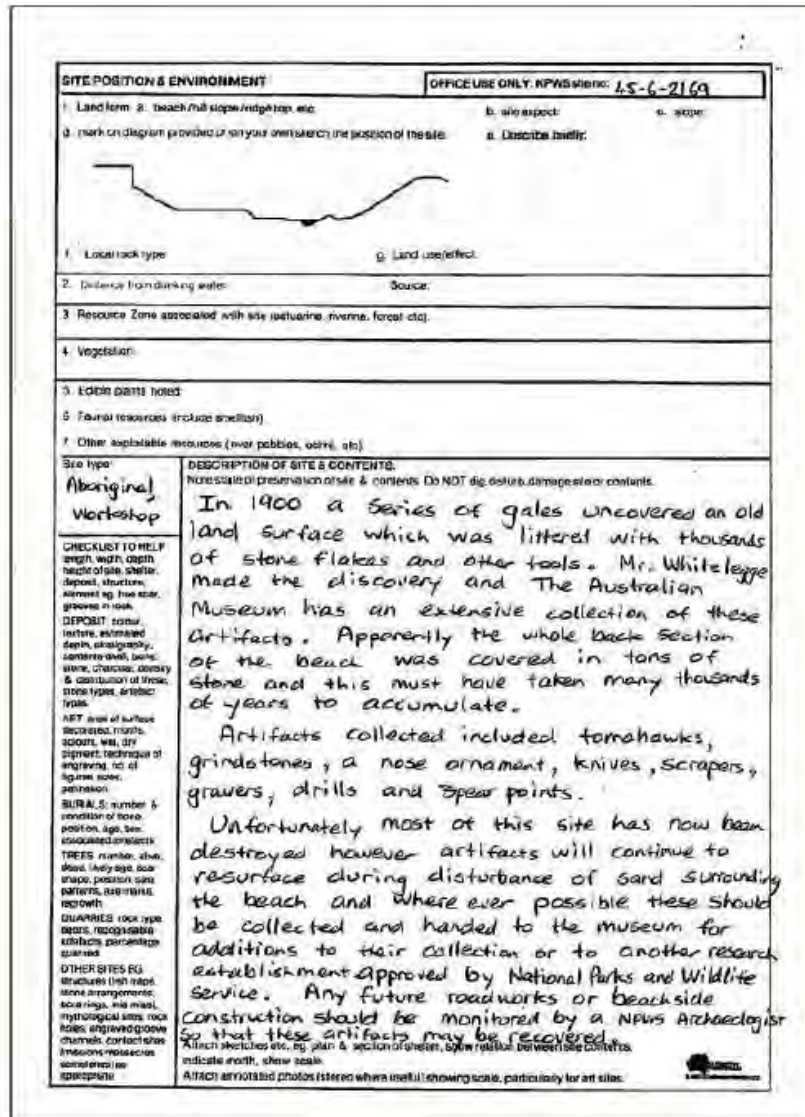 SITE POSITION & ENVIRONMENT
OFFICE USE ONLY: NPWS site no: 45-6-2169
1. Land form a. beach/hill slope/ridge top, etc
b. site aspect:
c. slope:
d. mark on diagram provided or on your own sketch the position of the site:
e. Describe briefly:
f. Local rock type:
g. Land use/effect:
2. Distance from drinking water:
Source:
3. Resource Zone associated with site (estuarine, riverine, forest etc):
4. Vegetation:
5. Edible plants noted:
6. Faunal resources (include shellfish):
7. Other exploitable resources (river pebbles, ochre, etc):
Site type:
Aboriginal
Workshop
CHECKLIST TO HELP
length, width, depth,
height of site, shelter,
deposit, structure,
element eg. tree scar,
grooves in rock.
DEPOSIT: colour,
texture, estimated
depth, stratigraphy,
contents-shell, bone,
stone, charcoal, density
& distribution of these,
stone types, artefact
types.
ART: area of surface
decorated, motifs,
colours, wet, dry
pigment, technique of
engraving, no. of
figures, sizes,
patination.
BURIALS: number &
condition of bone,
position, age, sex,
associated artefacts.
TREES: number, alive,
dead, likely age, scar
shape, position, size,
patterns, axe marks,
regrowth.
QUARRIES: rock type,
debris, recognisable
artefacts, percentage
quarried.
OTHER SITES EG.
structures (fish traps,
stone arrangements,
bora rings, mia mias),
mythological sites, rock
holes, engraved groove
channels, contact sites
(missions massacres
cemeteries) as
appropriate
DESCRIPTION OF SITE & CONTENTS.
Note state of preservation of site & contents. Do NOT dig, disturb, damage site or contents.
In 1900 a series of gales uncovered an old
land surface which was littered with thousands
of stone flakes and other tools. Mr. Whitelegge
made the discovery and The Australian
Museum has an extensive collection of these
artifacts. Apparently the whole back section
of the beach was covered in tons of
stone and this must have taken many thousands
of years to accumulate.
Artifacts collected included tomahawks,
grindstones, a nose ornament, knives, scrapers,
gravers, drills and spear points.
Unfortunately most of this site has now been
destroyed however artifacts will continue to
resurface during disturbance of sand surrounding
the beach and where ever possible these should
be collected and handed to the museum for
additions to their collection or to another research
establishment approved by National Parks and Wildlife
Service. Any future roadworks or beachside
construction should be monitored by a NPWS Archaeologist
so that these artifacts may be recovered.
Attach sketches etc, eg. plan & section of shelter, show relation between site contents,
indicate north, show scale.
Attach annotated photos (stereo where useful) showing scale, particularly for art sites.